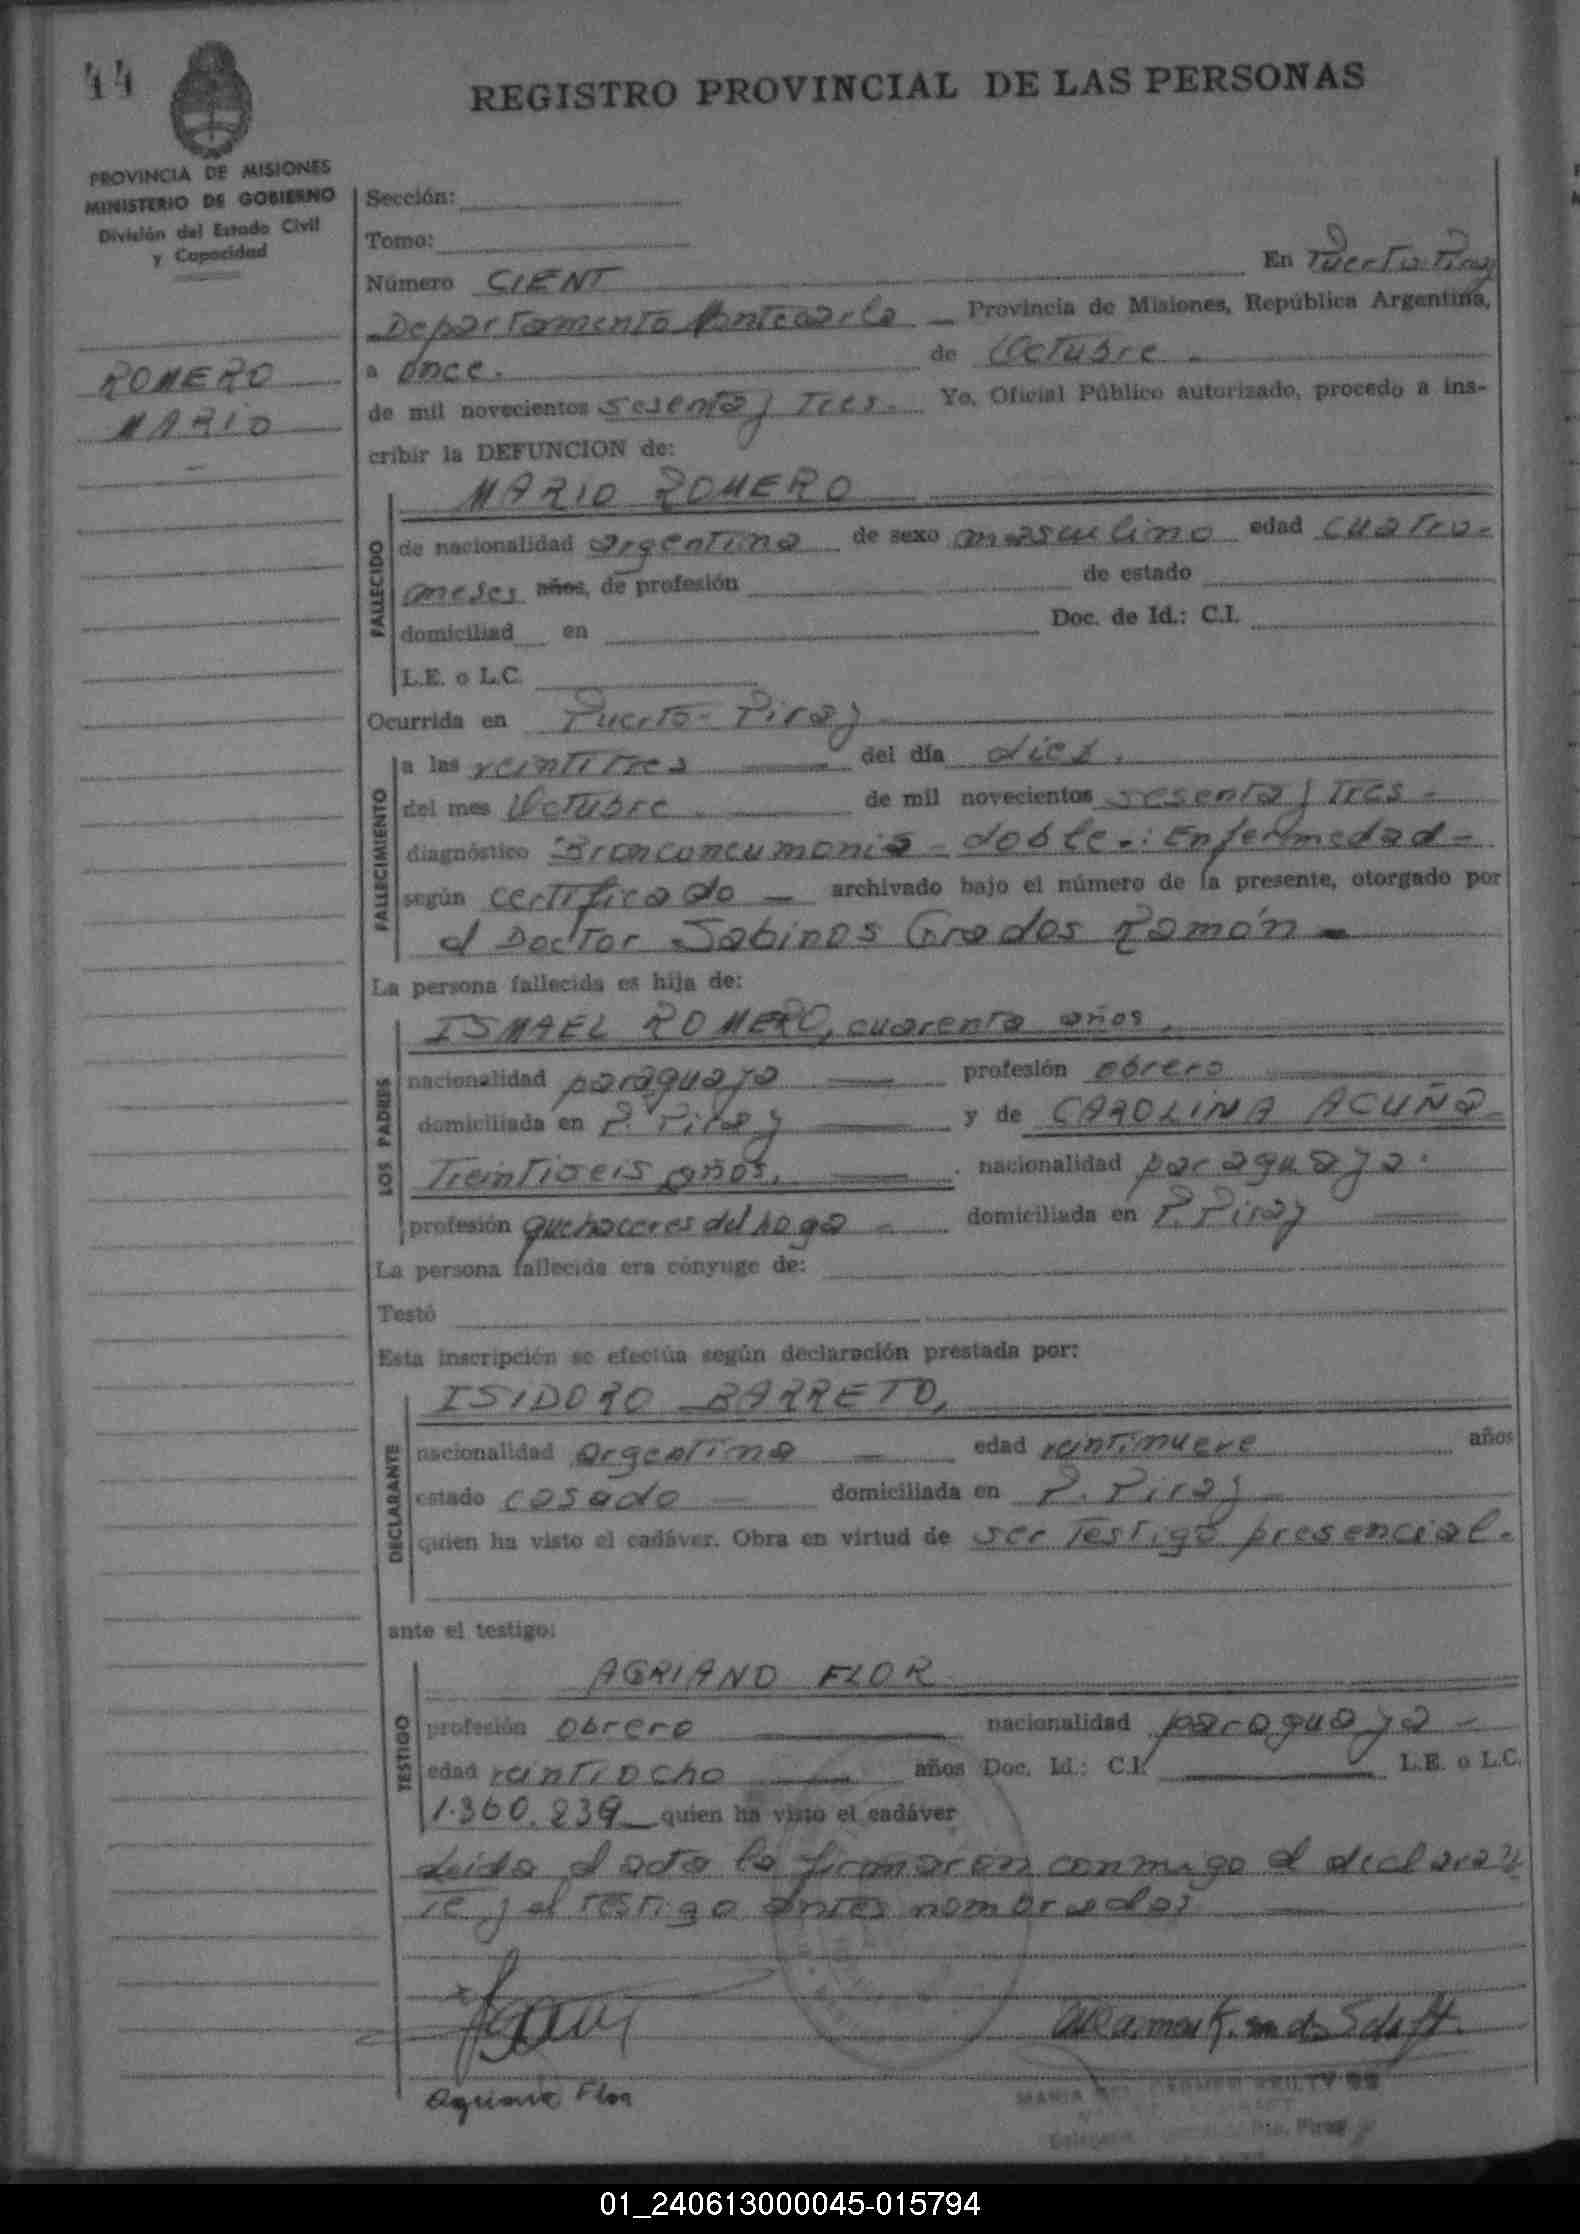 44
REGISTRO PROVINCIAL DE LAS PERSONAS
PROVINCIA DE MISIONES
MINISTERIO DE GOBIERNO
División del Estado Civil
y Capacidad
ROMERO
MARIO
Sección:
Tomo:
Número CIENT En Puerto Piray
Departamento Montecarlo Provincia de Misiones, República Argentina,
a once. de Octubre
de mil novecientos sesenta y Tres. Yo, Oficial Público autorizado, procedo a ins-
cribir la DEFUNCION de:
MARIO ROMERO
FALLECIDO
de nacionalidad argentina de sexo masculino edad cuatro
meses años, de profesión de estado
domiciliad en Doc. de Id.: C.I.
L.E. o L.C.
Ocurrida en Puerto-Piray
FALLECIMIENTO
a las veintitres del día diez.
del mes Octubre de mil novecientos sesenta y Tres-
diagnóstico Bronconeumonia-doble.: Enfermedad-
según certificado - archivado bajo el número de la presente, otorgado por
el Doctor Sabinos Grados Ramón-
La persona fallecida es hija de:
LOS PADRES
ISMAEL ROMERO, cuarenta años,
nacionalidad paraguaya profesión obrero
domiciliada en P. Piray y de CAROLINA ACUÑA-
Treintiseis años, nacionalidad paraguaya.
profesión quehaceres del hoga - domiciliada en P. Piray
La persona fallecida era cónyuge de:
Testó
Esta inscripción se efectúa según declaración prestada por:
DECLARANTE
ISIDORO BARRETO,
nacionalidad argentina - edad veintinueve años
estado casado - domiciliada en P. Piray-
quien ha visto el cadáver. Obra en virtud de ser Testigo presencial.
ante el testigo:
TESTIGO
AGRIANO FLOR
profesión obrero nacionalidad paraguaya-
edad veintiocho años Doc. Id.: C.I. L.E. o L.C.
1.360.239 quien ha visto el cadáver
Leida el acta la firmaron conmigo el declaran
te y el testigo antes nombrados
Flor
MARIA DEL CARMEN
Pto. Piray
01_240613000045-015794